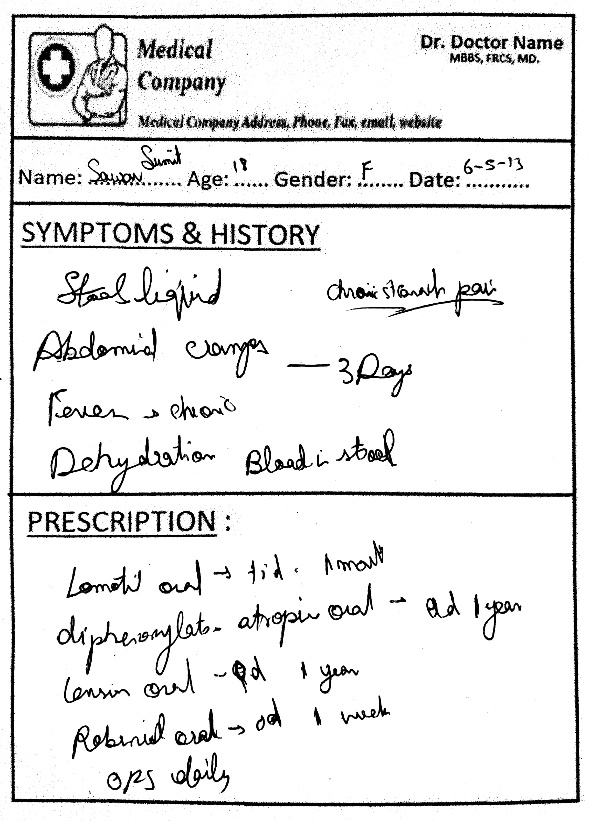 Medical
Company
Dr. Doctor Name
MBBS, FRCS, MD.
Medical Company Address, Phone, Fax, email, website
Name: Sawan Sumit Age: 18 Gender: F Date: 6-5-13
SYMPTOMS & HISTORY
Stool liquid
chronic stomach pain
Abdominal cramps — 3 Days
Fever → chronic
Dehydration Blood in stool
PRESCRIPTION :
Lomotil oral → tid. 1 month
diphenoxylate - atropin oral - qd 1 year
Levsin oral - qd 1 year
Robinul oral → od 1 week
ORS daily